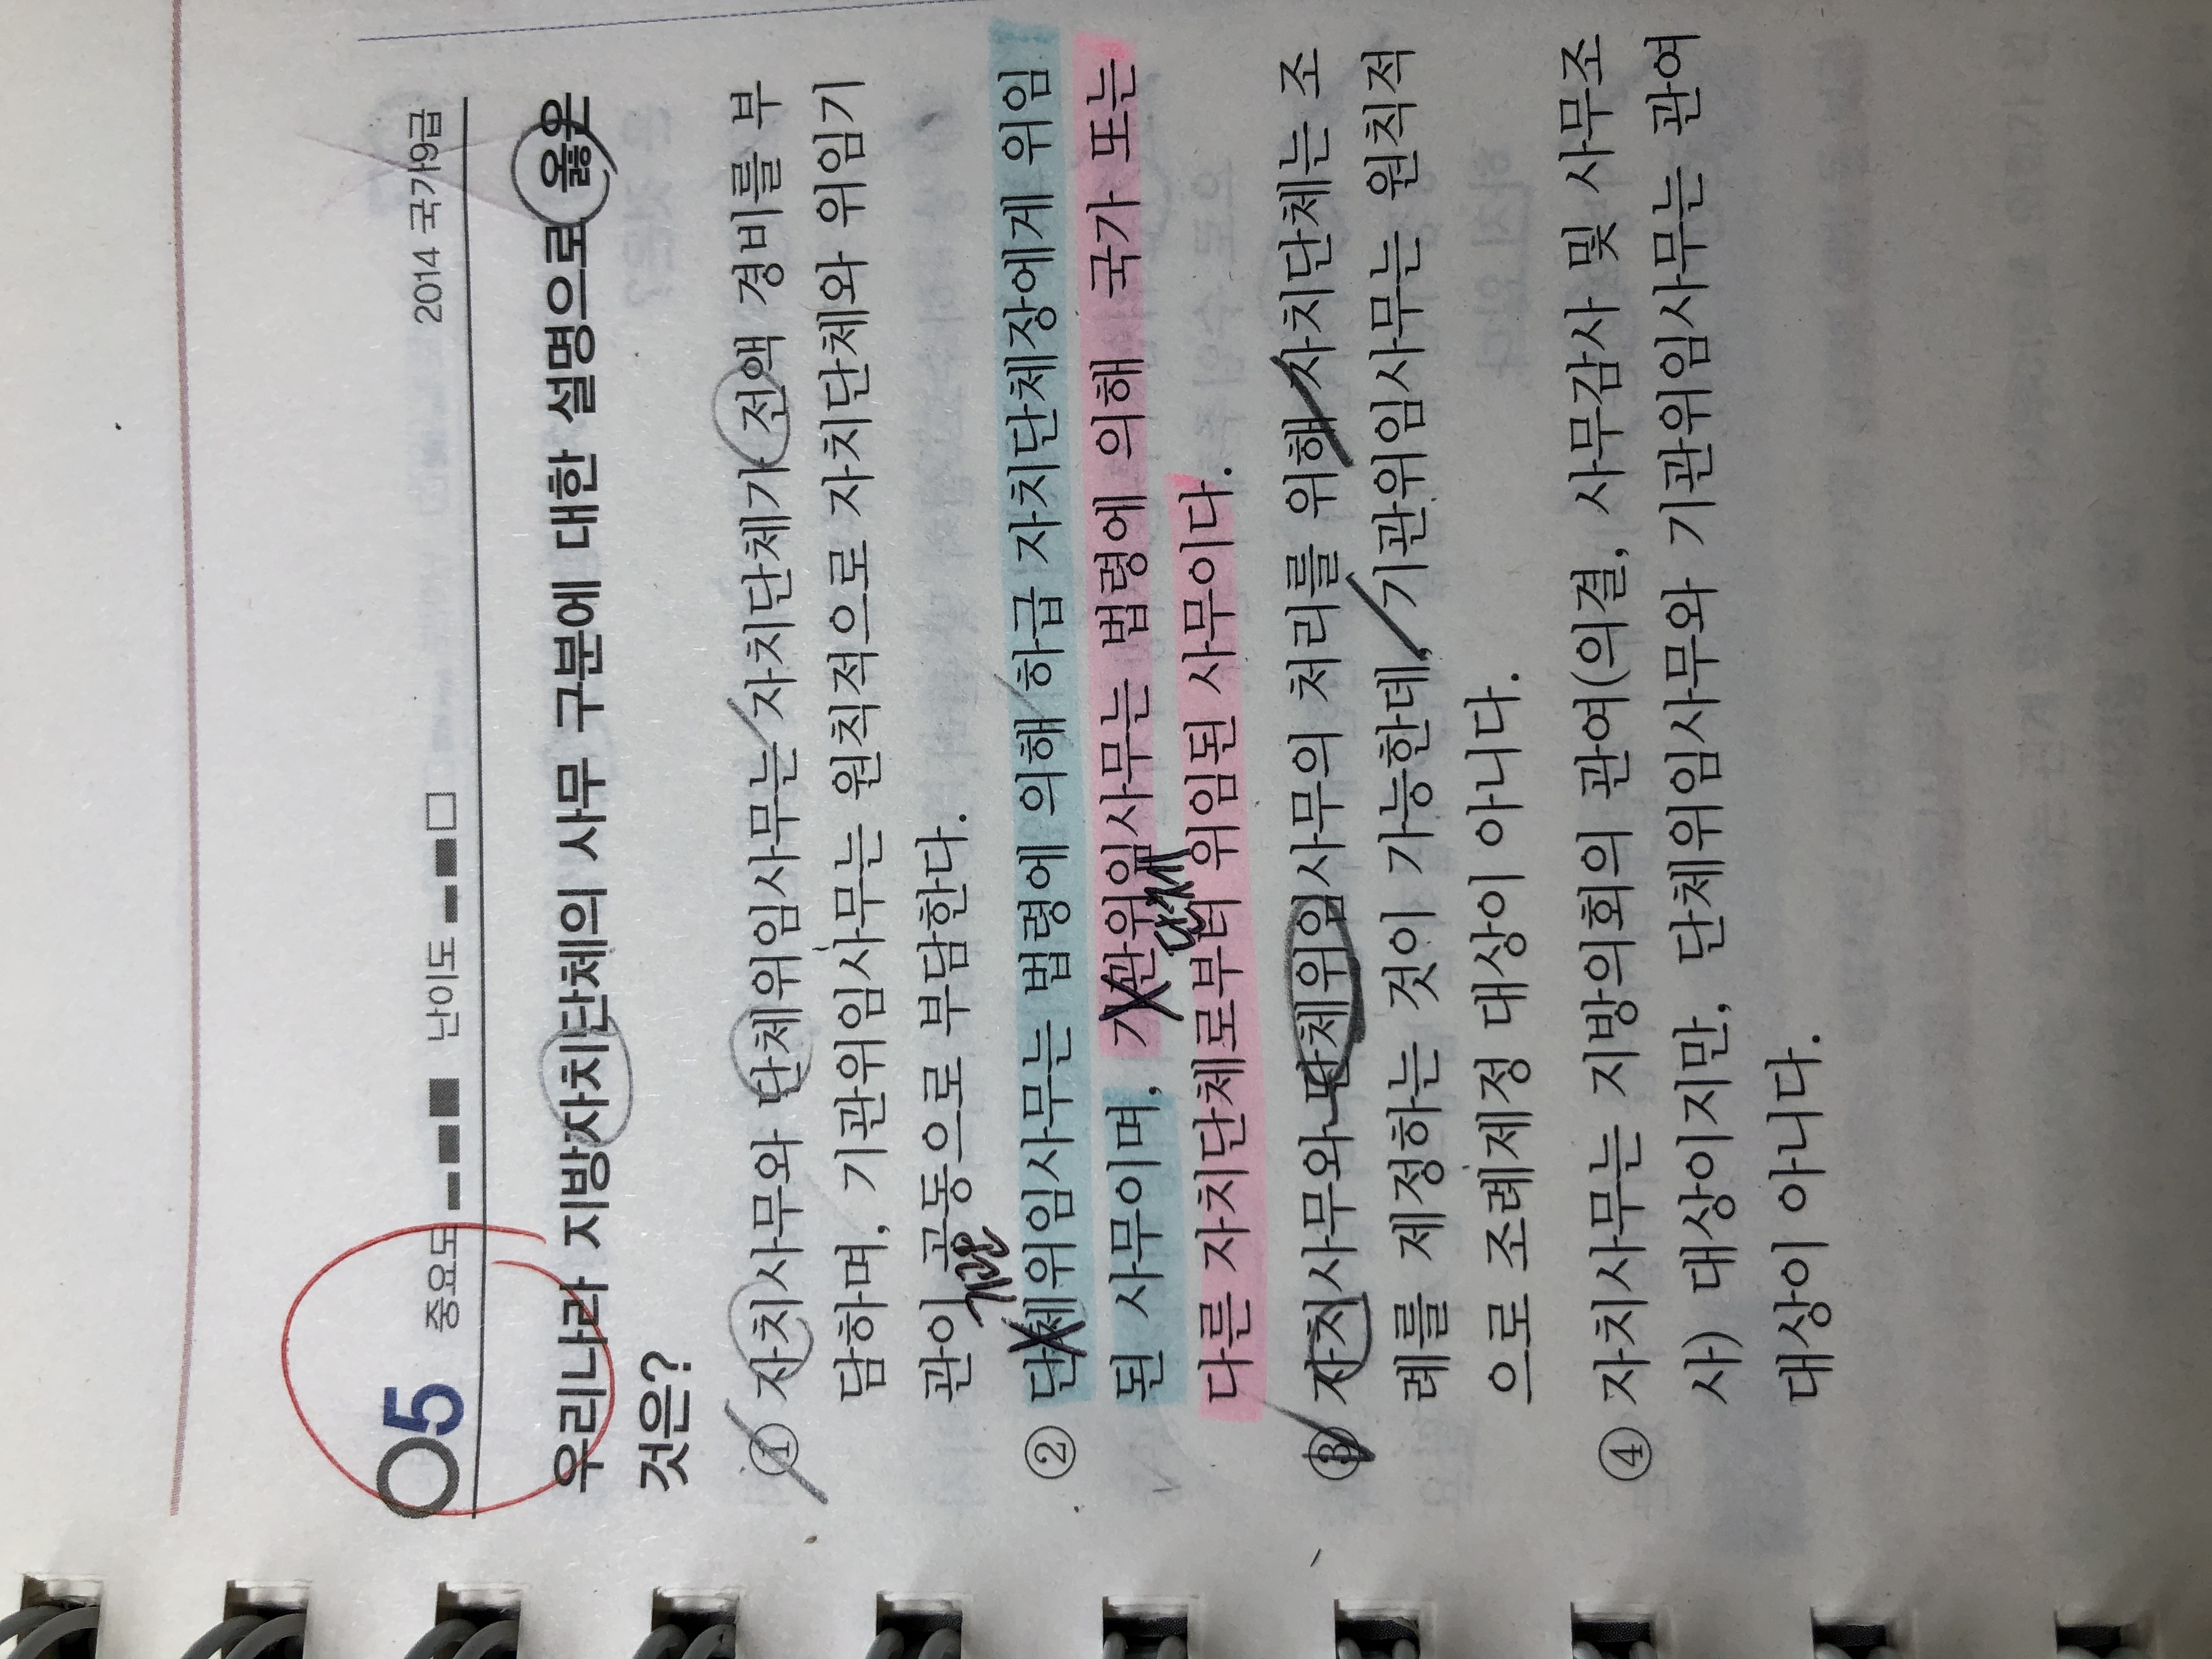 05 중요도 난이도 2014 국가9급
우리나라 지방자치단체의 사무 구분에 대한 설명으로 옳은
것은?
① 자치사무와 단체위임사무는 자치단체가 전액 경비를 부
담하며, 기관위임사무는 원칙적으로 자치단체와 위임기
관이 공동으로 부담한다.
기관
② 단체위임사무는 법령에 의해 하급 자치단체장에게 위임
된 사무이며, 기관위임사무는 법령에 의해 국가 또는
단체
다른 자치단체로부터 위임된 사무이다.
③ 자치사무와 단체위임사무의 처리를 위해 자치단체는 조
례를 제정하는 것이 가능한데, 기관위임사무는 원칙적
으로 조례제정 대상이 아니다.
④ 자치사무는 지방의회의 관여(의결, 사무감사 및 사무조
사) 대상이지만, 단체위임사무와 기관위임사무는 관여
대상이 아니다.